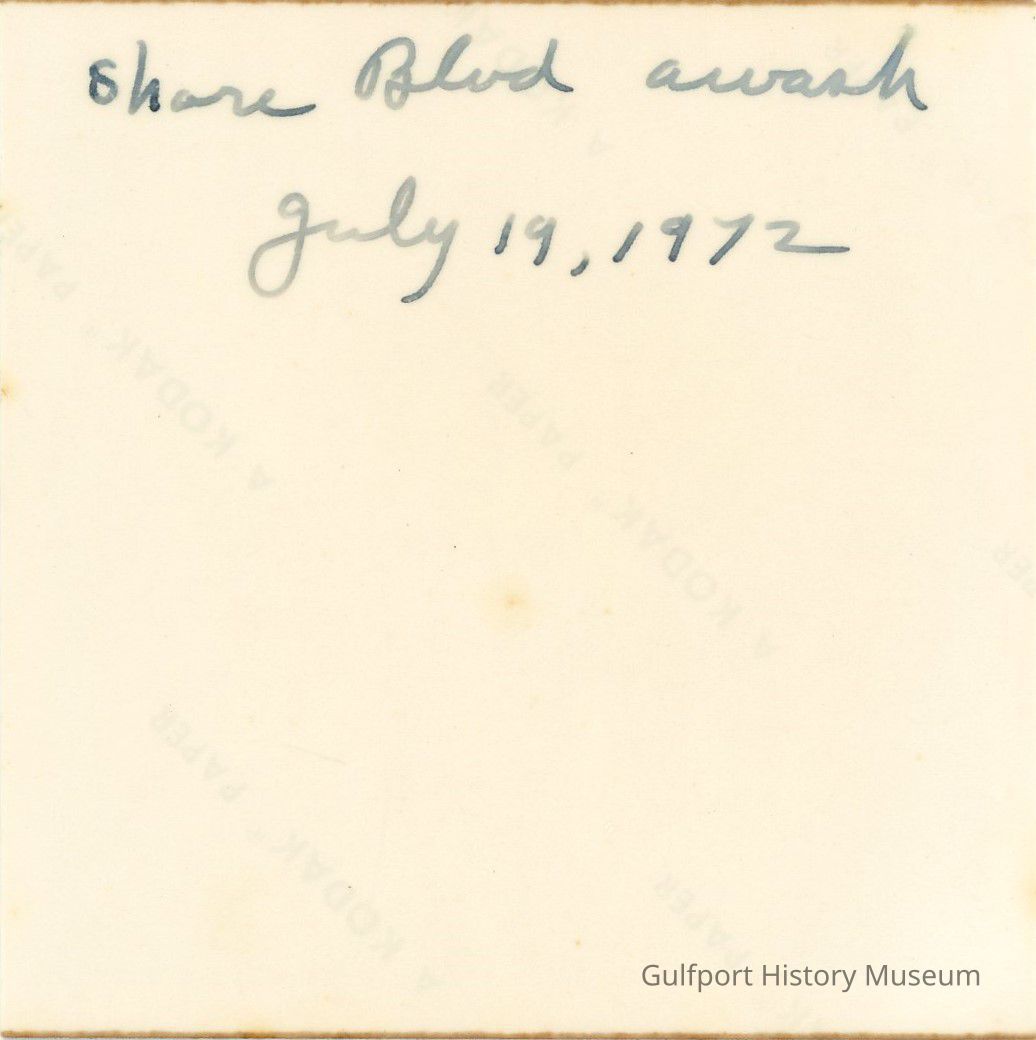 Shore Blvd awash
July 19, 1972
A KODAK™ PAPER
A KODAK™ PAPER
A KODAK™ PAPER
PAPER
Gulfport History Museum